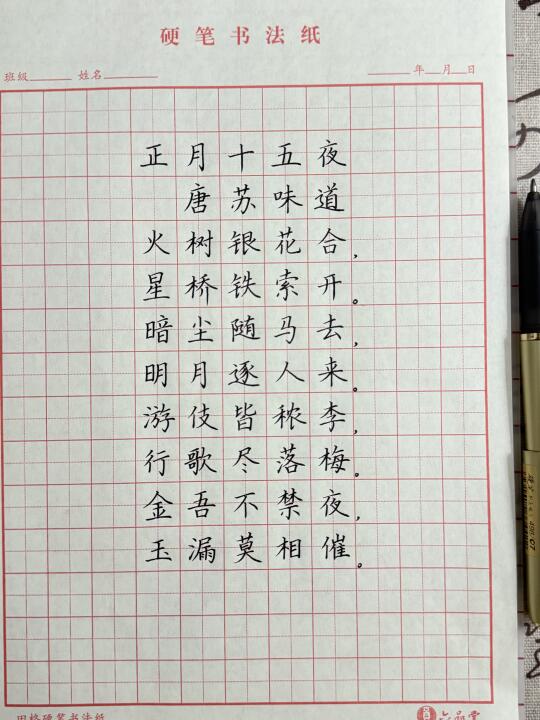 硬笔书法纸
班级 姓名 年 月 日
正月十五夜
唐 苏味道
火树银花合,
星桥铁索开。
暗尘随马去,
明月逐人来。
游伎皆秾李,
行歌尽落梅。
金吾不禁夜,
玉漏莫相催。
田格硬笔书法纸 六品堂